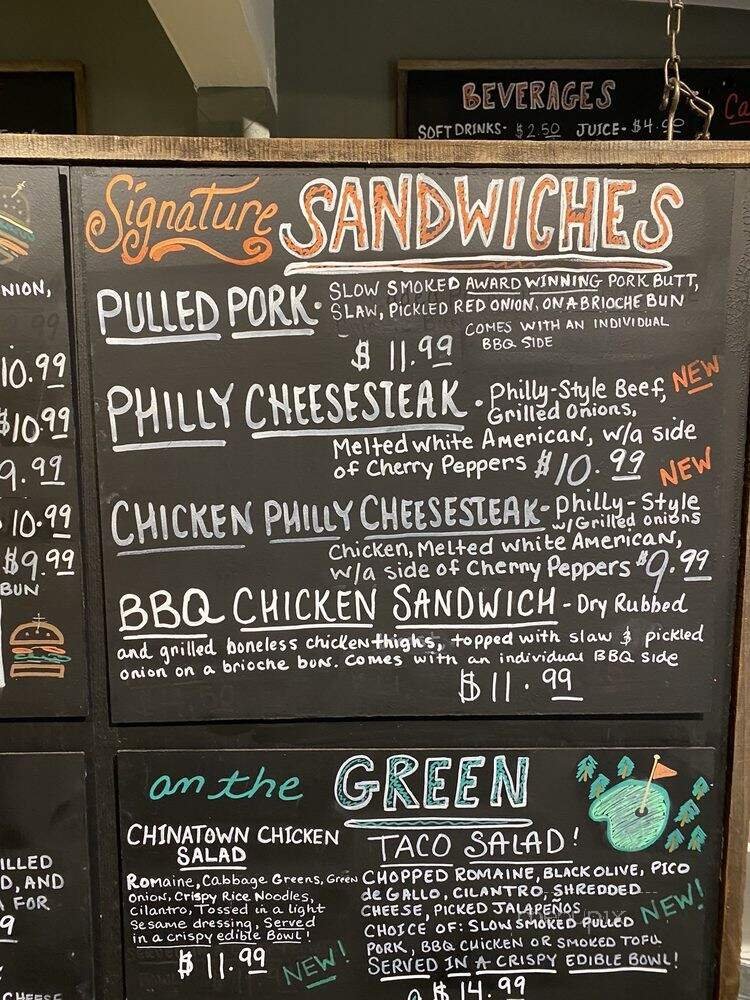 BEVERAGES
SOFT DRINKS- $2.50 JUICE- $4.50
Ca
NION,
10.99
$10.99
9.99
10.99
$9.99
BUN
Signature SANDWICHES
PULLED PORK • SLOW SMOKED AWARD WINNING PORK BUTT,
SLAW, PICKLED RED ONION, ON A BRIOCHE BUN
COMES WITH AN INDIVIDUAL
BBQ SIDE
$11.99
PHILLY CHEESESTEAK • Philly-Style Beef, NEW
Grilled Onions,
Melted White American, w/a side
of Cherry Peppers $10.99
NEW
CHICKEN PHILLY CHEESESTEAK- Philly-Style
w/Grilled onions
Chicken, Melted White American,
w/a side of Cherry Peppers $9.99
BBQ CHICKEN SANDWICH - Dry Rubbed
and grilled boneless chicken thighs, topped with slaw & pickled
onion on a brioche bun. Comes with an individual BBQ side
$11.99
ILLED
D, AND
A FOR
9
CHEESE
on the GREEN
CHINATOWN CHICKEN
SALAD
Romaine, Cabbage Greens, Green
onion, Crispy Rice Noodles,
Cilantro, Tossed in a light
Sesame dressing, Served
in a crispy edible Bowl!
$11.99
NEW!
TACO SALAD!
CHOPPED ROMAINE, BLACK OLIVE, PICO
de GALLO, CILANTRO, SHREDDED
CHEESE, PICKED JALAPEÑOS
CHOICE OF: SLOW SMOKED PULLED
PORK, BBQ CHICKEN OR SMOKED TOFU
SERVED IN A CRISPY EDIBLE BOWL!
NEW!
$14.99